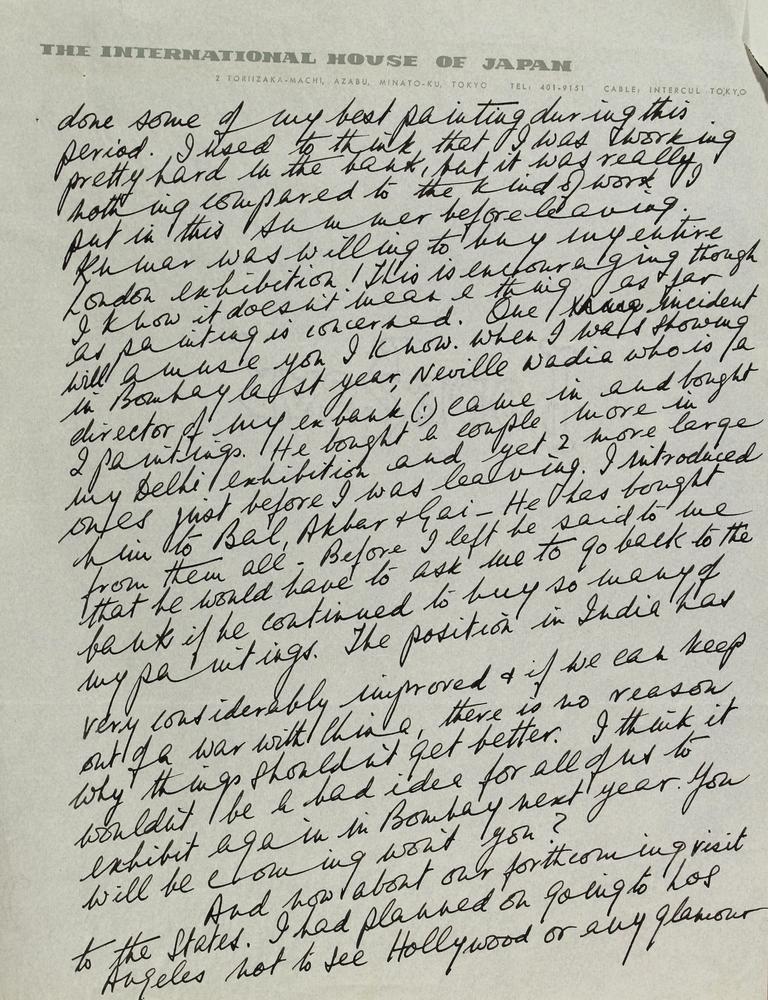 THE INTERNATIONAL HOUSE OF JAPAN
2 TORIIZAKA-MACHI, AZABU, MINATO-KU, TOKYO TEL: 401-9151 CABLE: INTERCUL TOKYO
done some of my best painting during this
period. I used to think that I was working
pretty hard in the bank, but it was really
nothing compared to the kind of work I
put in this summer before leaving.
Kumar was willing to buy my entire
London exhibition! This is encouraging though
I know it doesn't mean a thing as far
as painting is concerned. One incident
will amuse you I know. When I was showing
in Bombay last year, Neville Wadia who is a
director of my ex bank (!) came in and bought
2 paintings. He bought a couple more in
my Delhi exhibition and yet 2 more large
ones just before I was leaving. I introduced
him to Bal, Akbar & Gai - He has bought
from them all - Before I left he said to me
that he would have to ask me to go back to the
bank if he continued to buy so many of
my paintings. The position in India has
very considerably improved & if we can keep
out of a war with China, there is no reason
why things shouldn't get better. I think it
wouldn't be a bad idea for all of us to
exhibit again in Bombay next year. You
will be coming won't you?
And now about our forthcoming visit
to the States. I had planned on going to Los
Angeles not to see Hollywood or any glamour